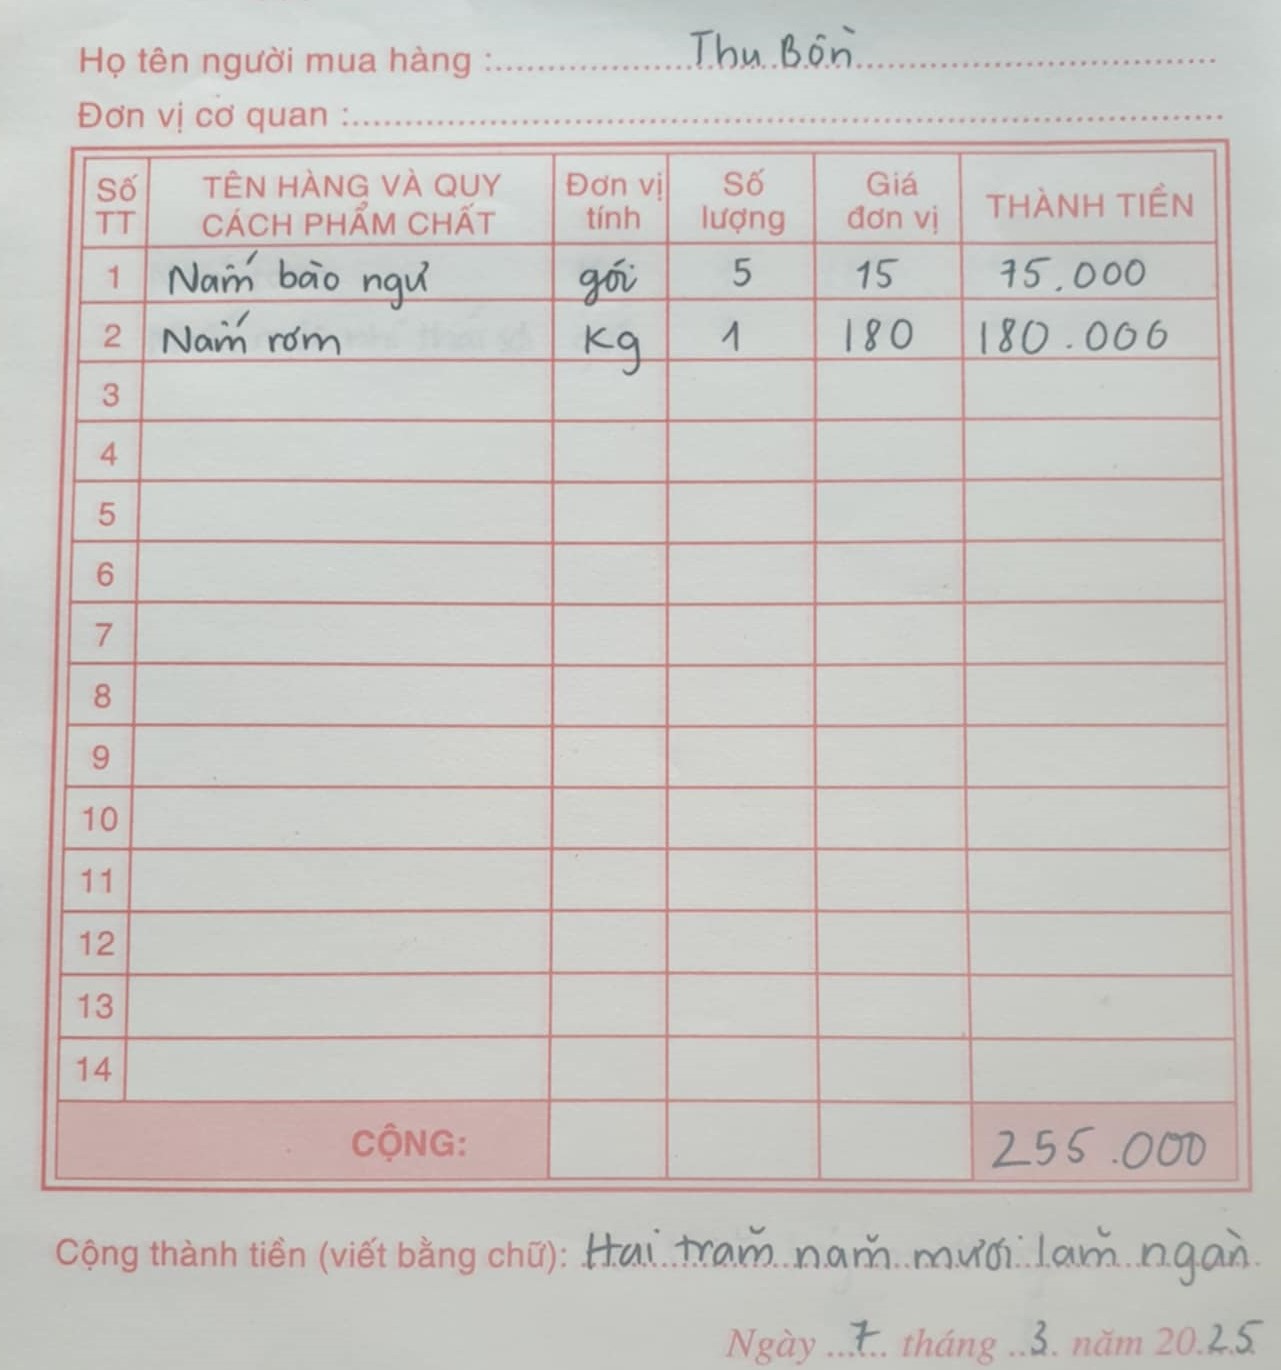 Họ tên người mua hàng : Thu Bồn
Đơn vị cơ quan :
Số TT TÊN HÀNG VÀ QUY CÁCH PHẨM CHẤT Đơn vị tính Số lượng Giá đơn vị THÀNH TIỀN
1 Nấm bào ngư gói 5 15 75.000
2 Nấm rơm Kg 1 180 180.000
3
4
5
6
7
8
9
10
11
12
13
14
CỘNG: 255.000
Cộng thành tiền (viết bằng chữ): Hai trăm năm mươi lăm ngàn
Ngày 7 tháng 3 năm 2025